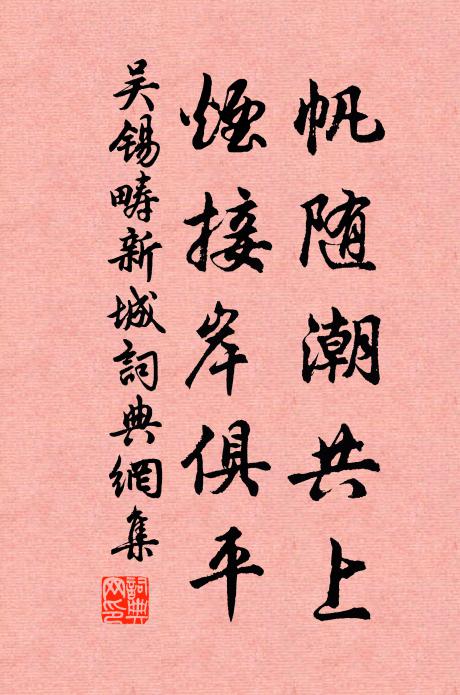 帆随潮共上
煙接岸俱平
吴锡畴新城詞典網集
詞典
网印